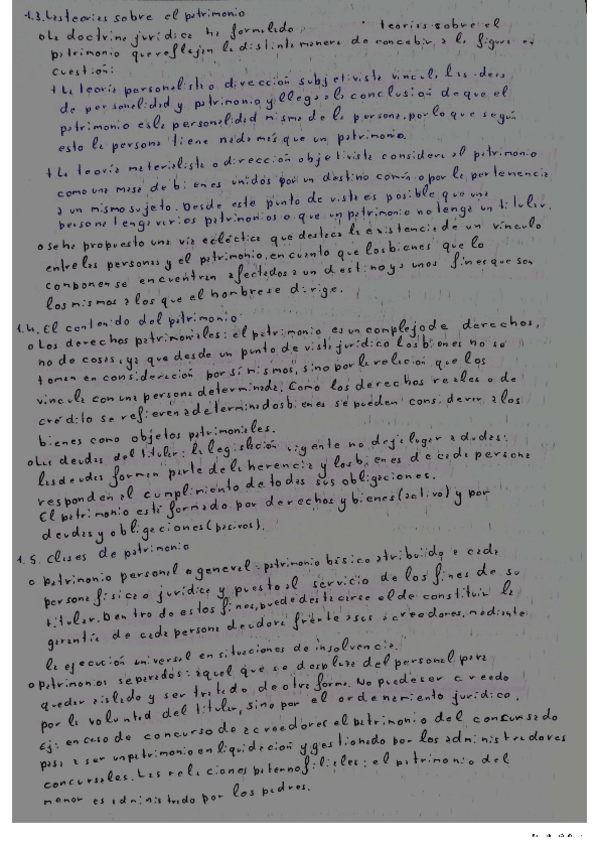 1.3. Las teorías sobre el patrimonio
o La doctrina jurídica ha formulado teorías sobre el
patrimonio que reflejan la distinta manera de concebir a la figura en
cuestión:
+ La teoría personalista o dirección subjetivista vincula las ideas
de personalidad y patrimonio y llega a la conclusión de que el
patrimonio es la personalidad misma de la persona, por lo que según
esto la persona tiene nada más que un patrimonio.
+ La teoría materialista o dirección objetivista considera al patrimonio
como una masa de bienes unidos por un destino común o por la pertenencia
a un mismo sujeto. Desde este punto de vista es posible que una
persona tenga varios patrimonios o que un patrimonio no tenga un titular.
o Se ha propuesto una vía ecléctica que destaca la existencia de un vínculo
entre las personas y el patrimonio, en cuanto que los bienes que lo
componen se encuentran afectados a un destino y a unos fines que son
los mismos a los que el hombre se dirige.
1.4. El contenido del patrimonio
o Los derechos patrimoniales: el patrimonio es un complejo de derechos,
no de cosas, ya que desde un punto de vista jurídico los bienes no se
toman en consideración por sí mismos, sino por la relación que los
vincula con una persona determinada. Como los derechos reales o de
crédito se refieren a determinados bienes se pueden considerar a los
bienes como objetos patrimoniales.
o Las deudas del titular: la legislación vigente no deja lugar a dudas:
las deudas forman parte de la herencia y los bienes de cada persona
responden al cumplimiento de todas sus obligaciones.
El patrimonio está formado por derechos y bienes (activo) y por
deudas y obligaciones (pasivos).
1.5. Clases de patrimonio
o Patrimonio personal o general: patrimonio básico atribuido a cada
persona física o jurídica y puesto al servicio de los fines de su
titular. Dentro de estos fines, puede destacarse el de constituir la
garantía de cada persona deudora frente a sus acreedores, mediante
la ejecución universal en situaciones de insolvencia.
o Patrimonios separados: aquel que se desplaza del personal para
quedar aislado y ser tratado de otra forma. No puede ser creado
por la voluntad del titular, sino por el ordenamiento jurídico.
Ej: en caso de concurso de acreedores el patrimonio del concursado
pasa a ser un patrimonio en liquidación y gestionado por los administradores
concursales. Las relaciones paternofiliales: el patrimonio del
menor es administrado por los padres.